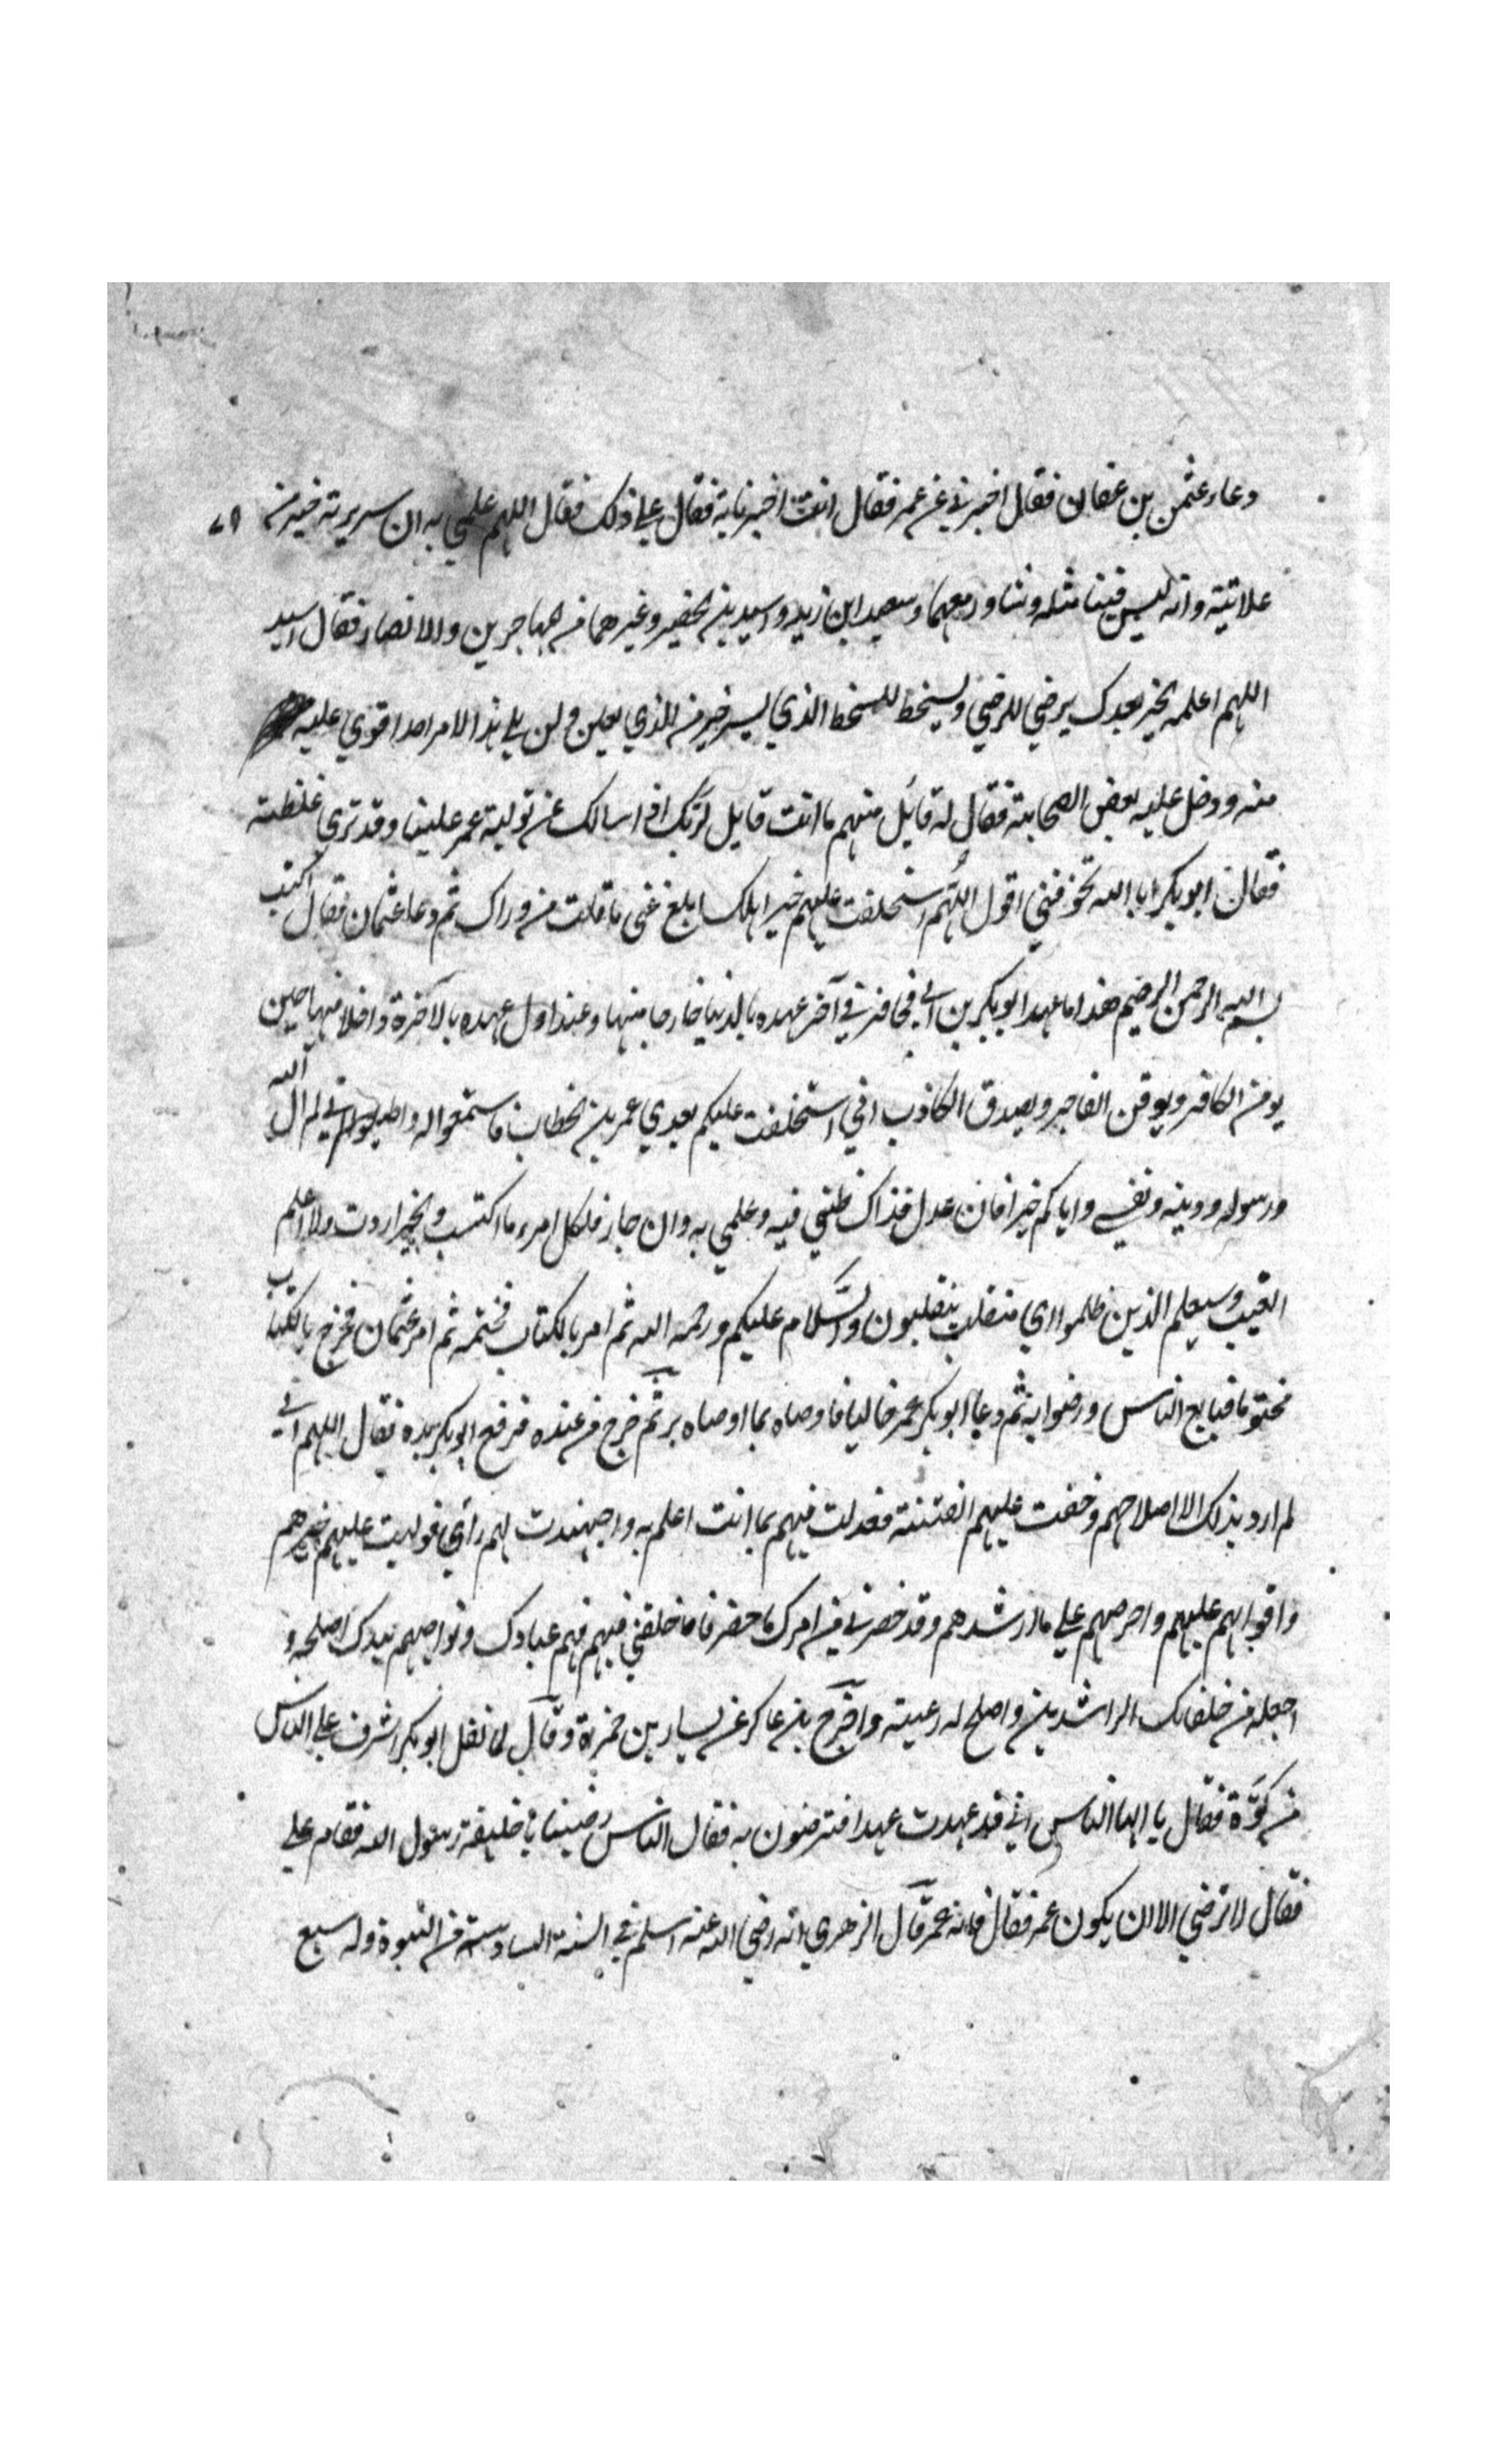 ودعا عثمن بن عفان فقال اخبرني عن عمر فقال انت اخبرنا به فقال علي ذلك فقال اللهم علمي به ان سريرته خير من ٧٩
علانيته وانه ليس فينا مثله وشاور معهما وسعيد ابن زيد واسيد بن حضير وغيرهما من المهاجرين والانصار فقال اسيد
اللهم اعلمه الخير بعدك يرضي للرضي ويسخط للسخط الذي يسر خير من الذي يعلن ولن يلي هذا الامر احد اقوي عليه
منه ودخل عليه بعض الصحابة فقال له قائل منهم ما انت قايل لربك اذا سالك عن تولية عمر علينا وقد تري غلظته
فقال ابو بكر ابا الله تخوفني اقول اللهم استخلفت عليهم خير اهلك ابلغ عني ما قلت من وراك ثم دعا عثمان فقال اكتب
بسم الله الرحمن الرحيم هذا ما عهد ابو بكر بن ابي قحافة في آخر عهده بالدنيا خارجا منها وعند اول عهده بالآخرة داخلا فيها حين
يومن الكافر ويوقن الفاجر ويصدق الكاذب اني استخلفت عليكم بعدي عمر بن الخطاب فاستمعوا له واطيعوا واني لم ال الله
ورسوله ودينه ونفسي واياكم خيرا فان عدل فذاك ظني فيه وعلمي به وان جار فلكل امرء ما اكتسب والخير اردت ولا اعلم
الغيب وسيعلم الذين ظلموا اي منقلب ينقلبون والسلام عليكم ورحمه الله ثم امر بالكتاب فختمه ثم امر عثمان فخرج بالكتاب
مختوما فبايع الناس ورضوا به ثم دعا ابو بكر عمر خاليا فاوصاه بما اوصاه به ثم خرج من عنده فرفع ابو بكر يده فقال اللهم اني
لم ارد بذلك الا اصلاحهم وخفت عليهم الفتنة فعملت فيهم بما انت اعلم به واجتهدت لهم رأي فوليت عليهم خيرهم
واقواهم عليهم واحرصهم علي ما ارشدهم وقد حضرني من امرك ما حضر فاخلفني فيهم فهم عبادك ونواصيهم بيدك اصلحه و
اجعله من خلفائك الراشدين واصلح له رعيته واخرج بن عساكر عن يسار بن حمزة وقال لما ثقل ابو بكر اشرف علي الناس
من كوة فقال يا ايها الناس اني قد عهدت عهدا افترضون به فقال الناس رضينا يا خليفة رسول الله فقام علي
فقال لا نرضي الا ان يكون عمر فقال فانه عمر قال الزهري انه رضي الله عنه اسلم في السنة السادسة من النبوة وله سبع